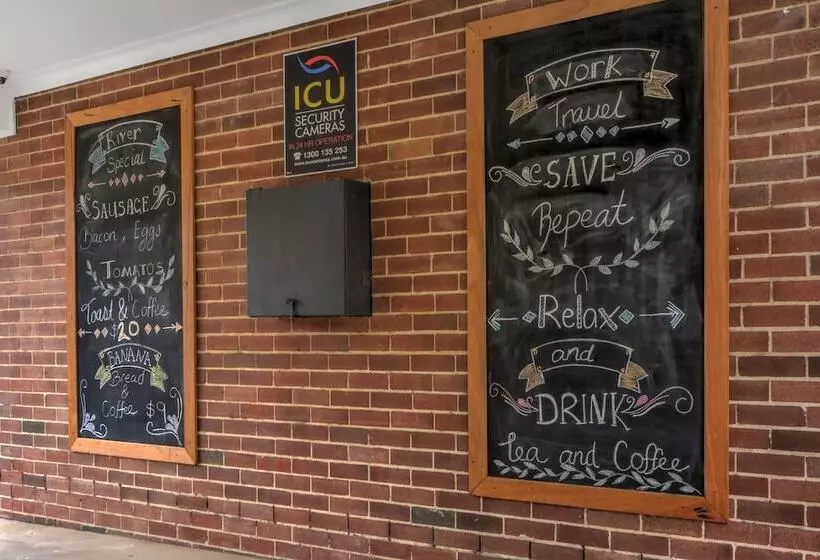 River
Special
SAUSAGE
Bacon, Eggs
TOMATOS
Toast & Coffee
$20
BANANA
Bread
&
Coffee $9
ICU
SECURITY
CAMERAS
IN 24 HR OPERATION
1300 135 253
Work
Travel
SAVE
Repeat
Relax
and
DRINK
Tea and Coffee